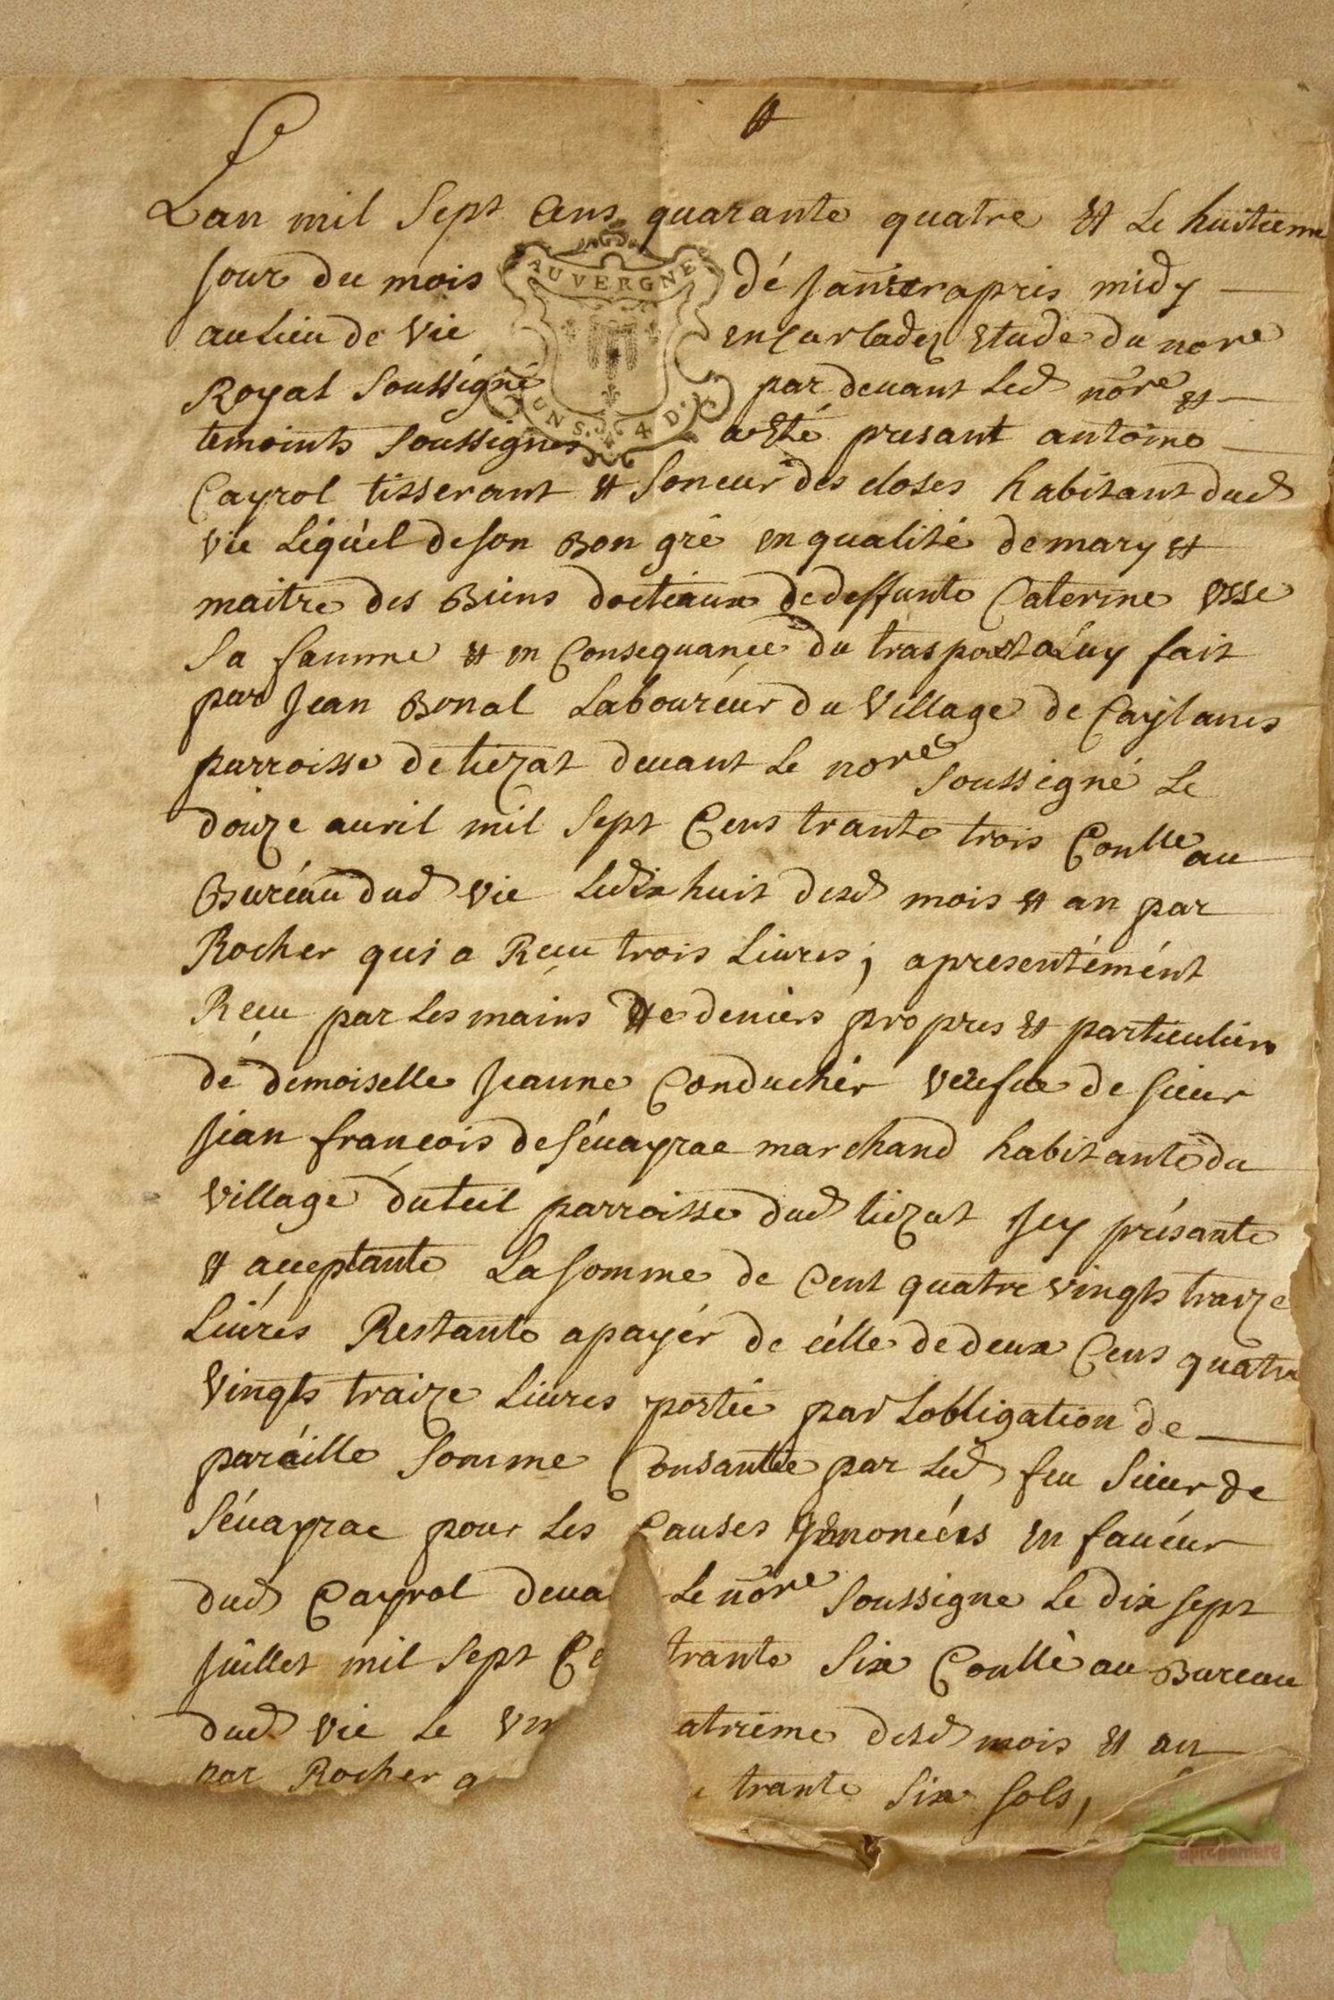 Lan mil sept Cens quarante quatre et le huitieme
Jour du mois dé Janvier apris midy
AUVERGNE
UN S. 4 D.
au lieu de Vic en Carladez Etude du nore
Royal soussigné par devant led nore et
temoints soussignes a Eté presant antoine
Cayrol tisserant et soneur des closes habitant dud
Vic Léquél de son Bon gré en qualité de mary et
maitre des Biens docteaux de deffunte Caterine Usse
sa famme et en Consequance du trasport a Luy fait
par Jean Bonal Laboureur du Village de Caylanes
parroisse de tiezat devant Le nore soussigné Le
douze avril mil sept Cens trante trois Conllé au
Buréau dud Vic Le dix huit desd mois et an par
Rocher qui a Recu trois Livres, apresentémént
Recu par Les mains et de deniers propres et particuliers
dé demoiselle Jeanne Conduchér veufve de sieur
Jean francois de sévayrac marchand habitante du
Village duteil parroisse dud tiezat Jcy présante
et acceptante La somme de Cent quatre vingts traize
Liúres Restante a payér de célle de deux Cens quatre
Vingts traize Livres portée par Lobligation de
paréille somme Consantée par Led feu sieur de
sévayrac pour Les Causes Enoncéés en favéur
dud Cayrol deva Le nore soussigne Le dix sept
Juillet mil sept Ce trante six Conllé au Bureau
dud Vic Le Vin atriéme desd mois et an
par Rocher q trante six sols,